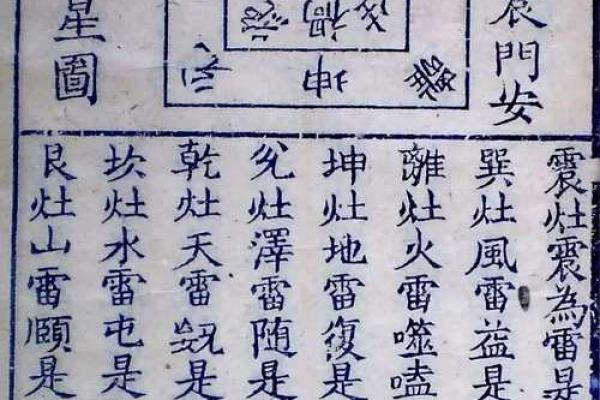 門安
離
坤
禍
星圖
震灶震為雷是
巽灶風雷益是
離灶火雷噬嗑
坤灶地雷復是
兊灶澤雷随是
乾灶天雷是
坎灶水雷屯是
艮灶山雷頤是